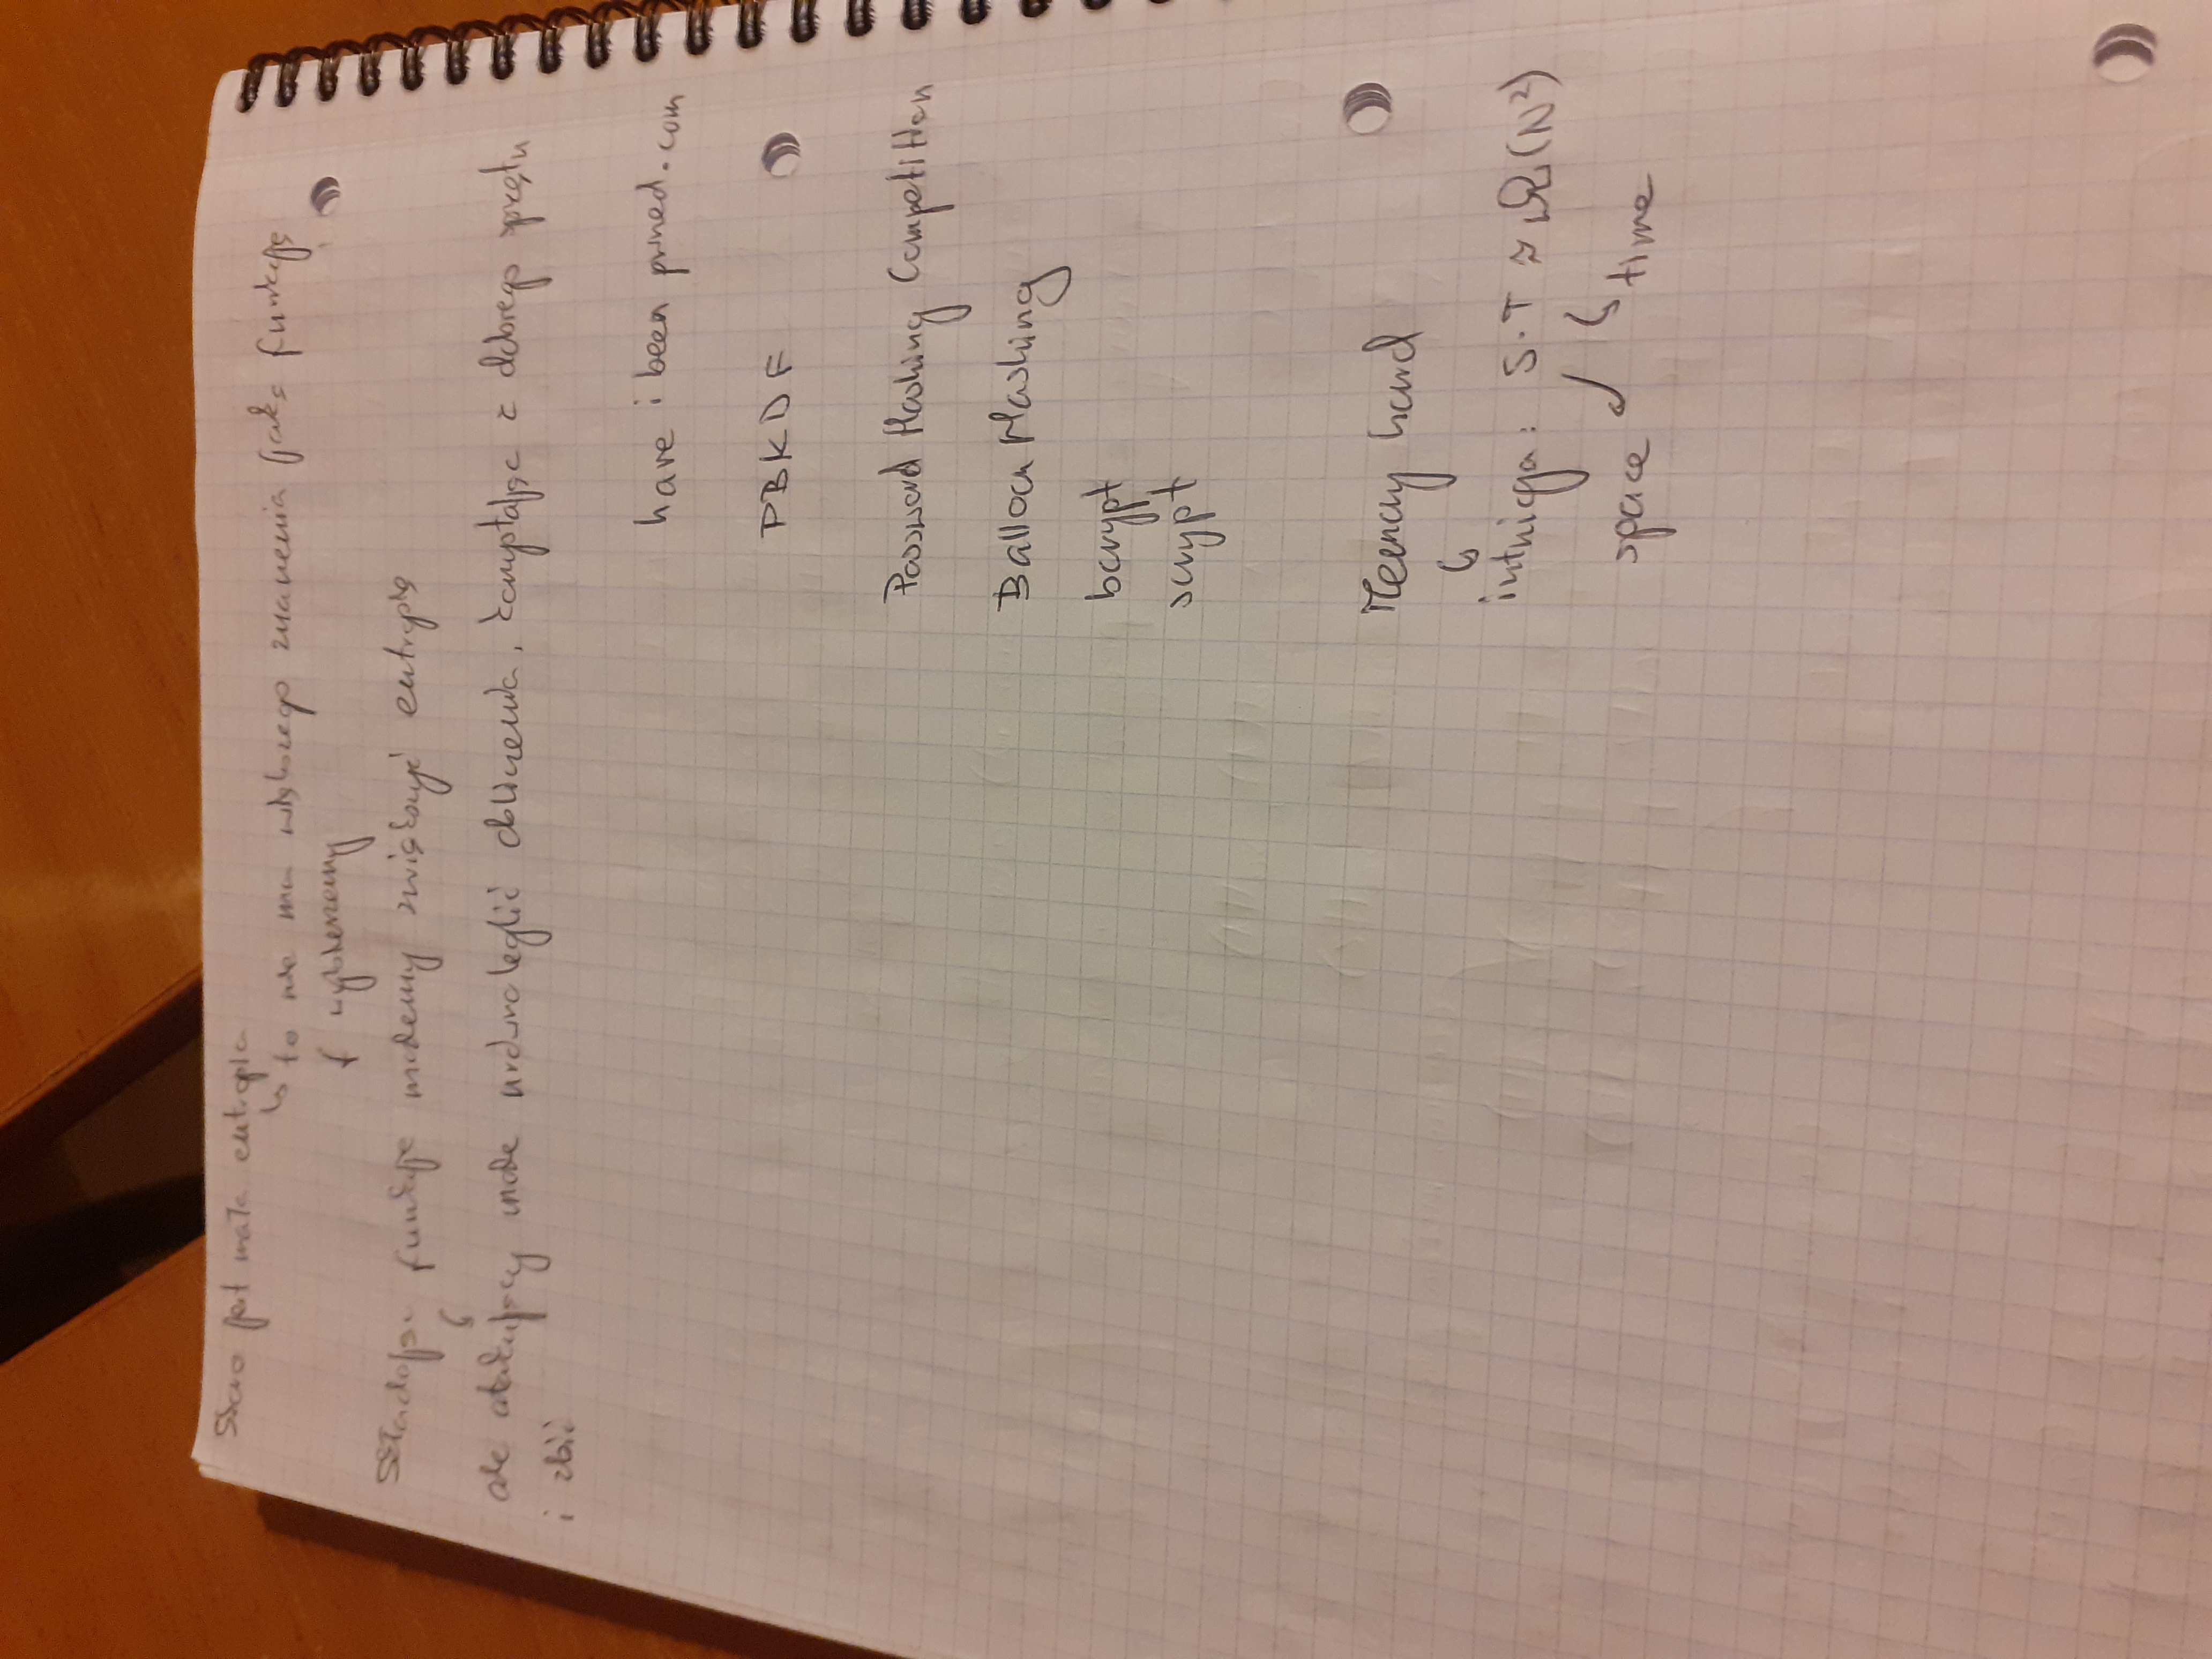 Skoro jest mała entropia
↳ to nie ma większego znaczenia jaką funkcję
f wybierzemy
Składając funkcje możemy zwiększyć entropię
↳
ale atakujący może urównoleglić obliczenia, korzystając z dobrego sprzętu
i zbić
have i been pwned.com
PBKDF
Password Hashing Competition
Balloon Hashing
bcrypt
scrypt
Memory hard
↳
intuicja: S·T ≈ Ω(N²)
space time